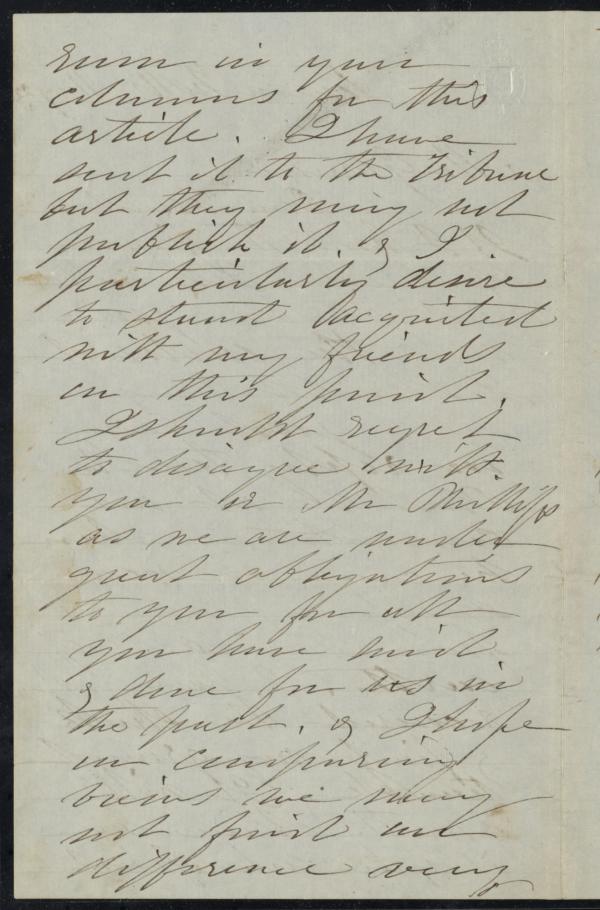 room in your
columns for this
article. I have
sent it to the Tribune
but they may not
publish it. & I
particularly desire
to stand acquitted
with my friends
on this point.
I should regret
to disagree with
you or Mr Phillips
as we are under
great obligations
to you for all
you have said
& done for us in
the past. & I hope
on comparing
views we may
not find our
difference very